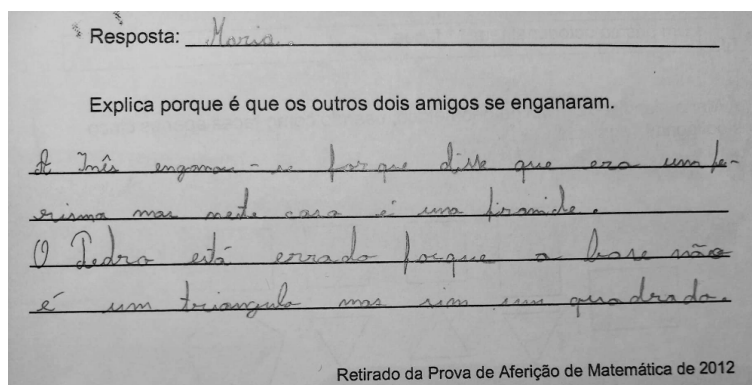 Resposta: Maria.
Explica porque é que os outros dois amigos se enganaram.
A Inês enganou-se porque disse que era uma pe-
risma mas neste caso é uma piramide.
O Pedro está errado porque a base não
é um triangulo mas sim um quadrado.
Retirado da Prova de Aferição de Matemática de 2012